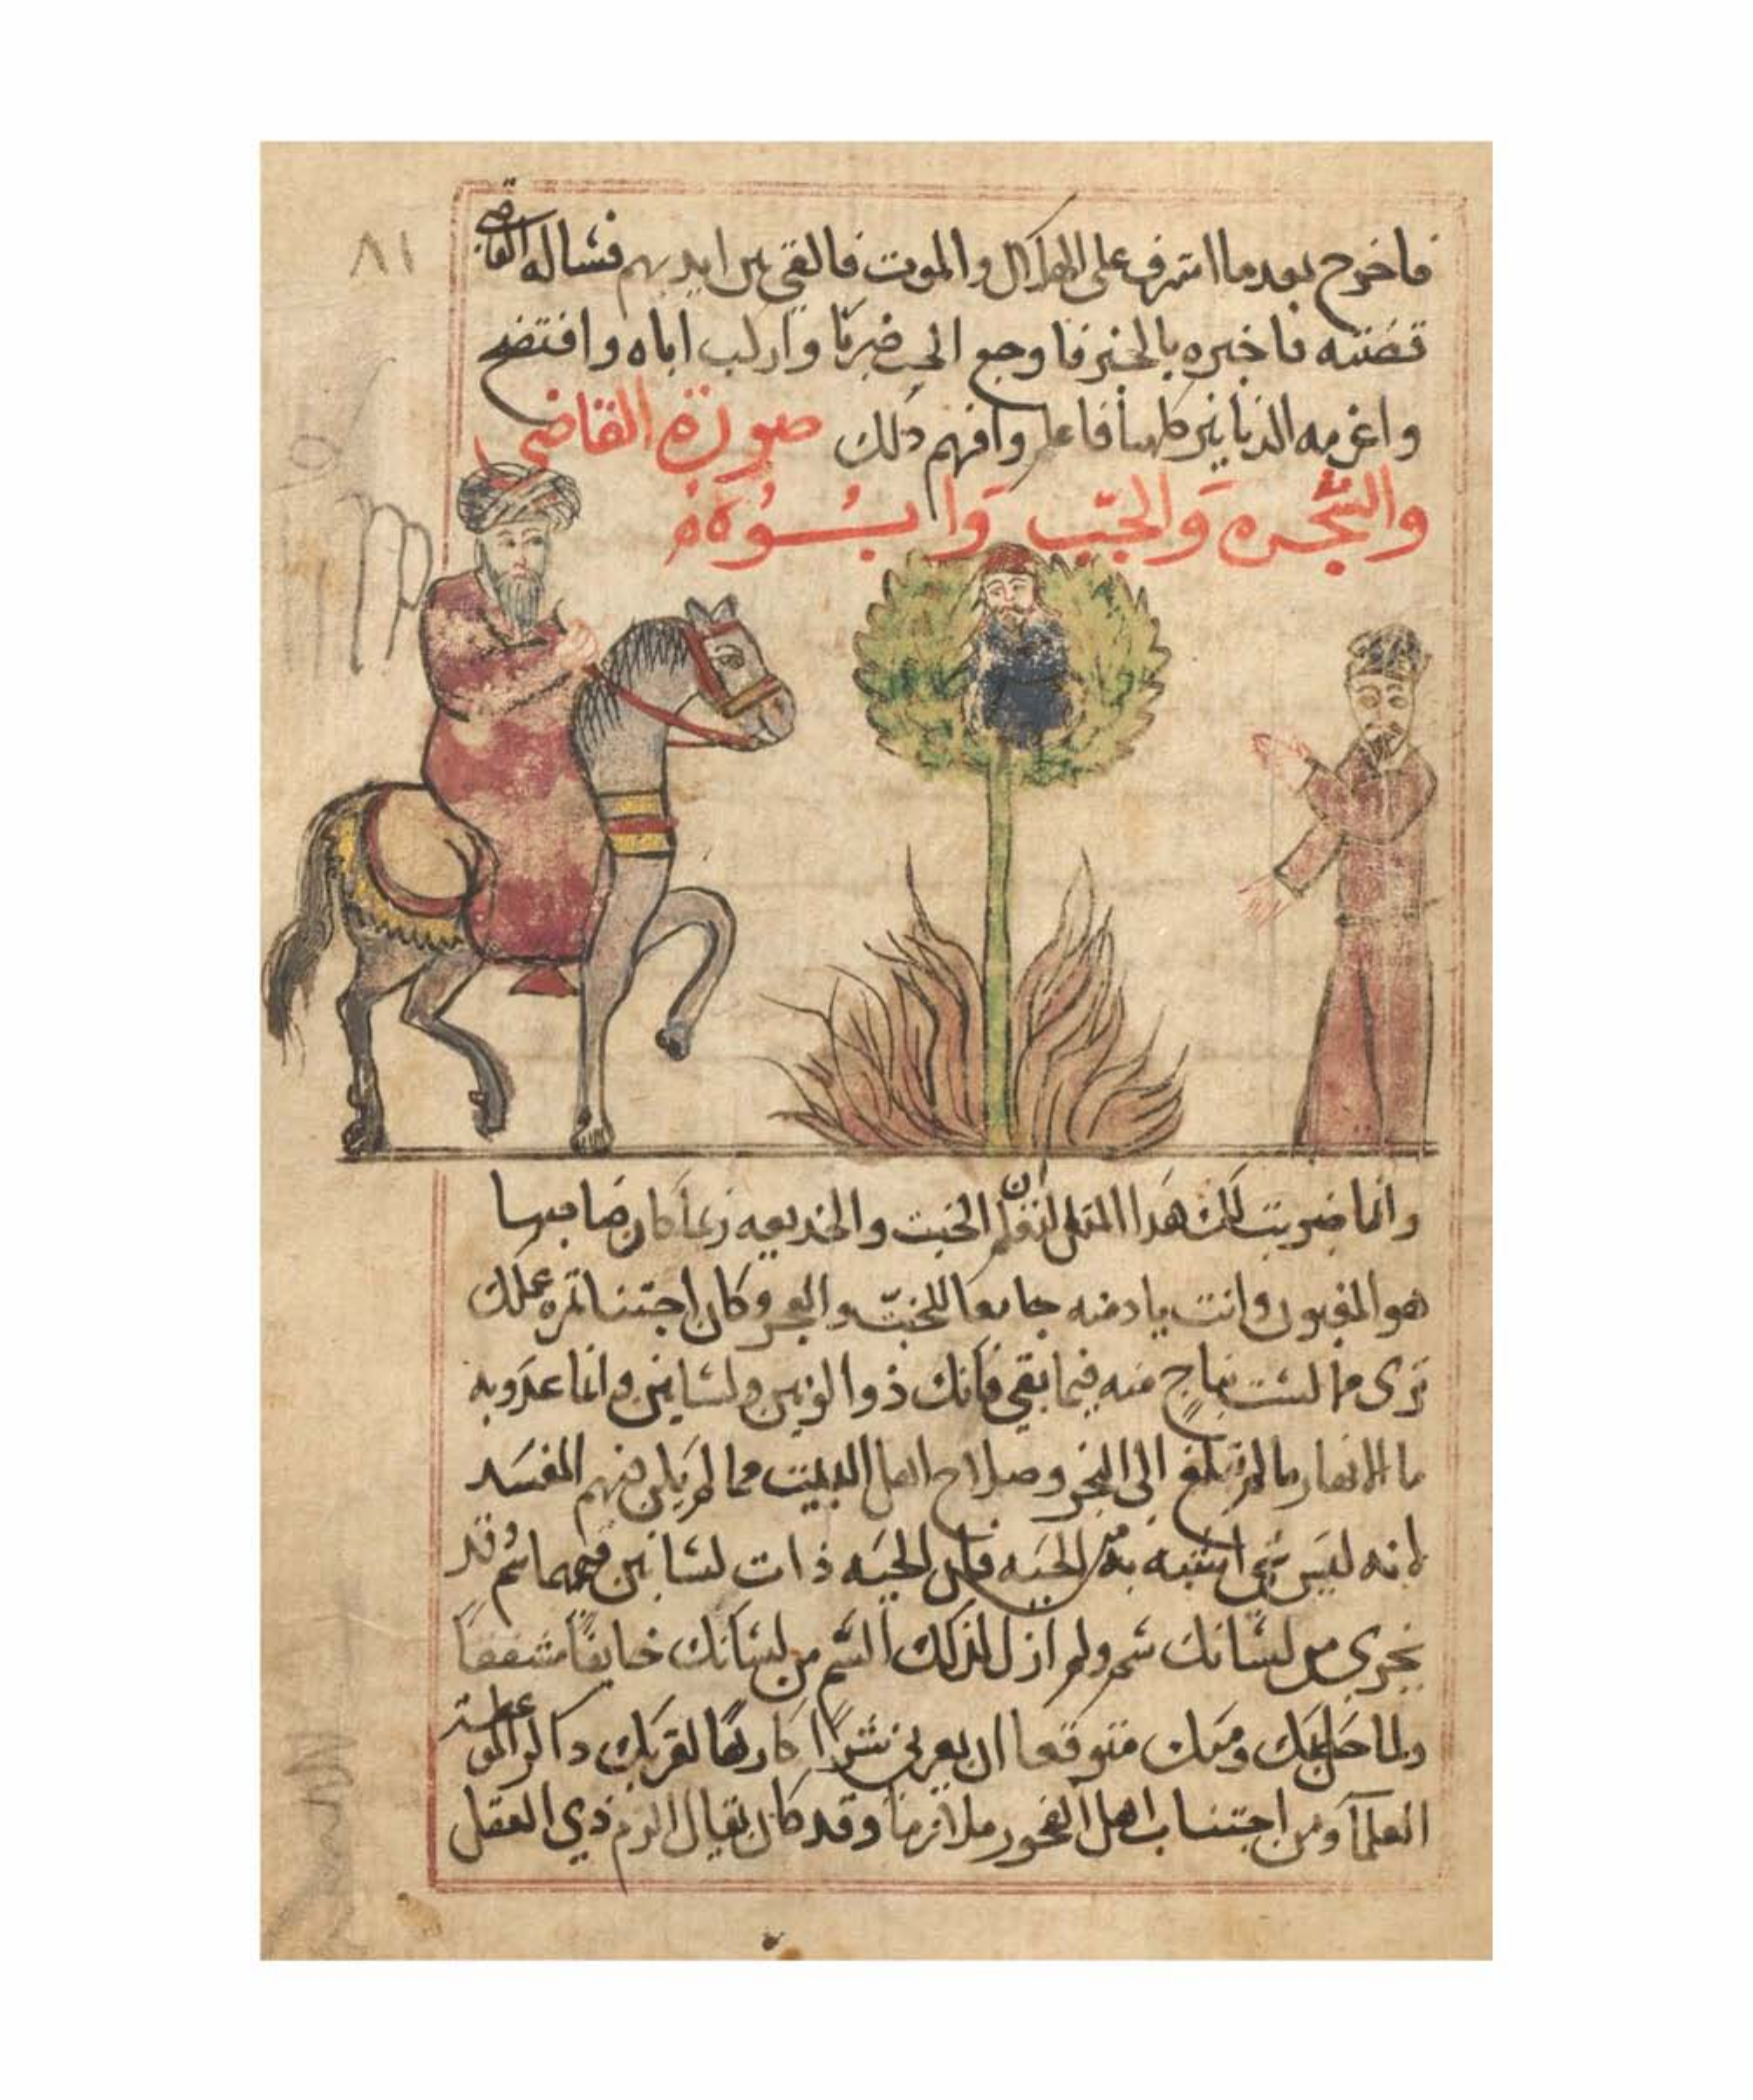 ٨١
فاخرج بعدما اشرف على الهلاك والموت فالقي بين ايديهم فساله القاضي
قصته فاخبره بالخبر فاوجع الخب ضربا واركب اباه وافتضح
واغرمه الدنانير كلها فاعلم وافهم ذلك صورة القاضي
والشجره والخب وابـــوه
وانما ضربت لك هدا المثل لتعلم ان الخبت والخديعه ربما كان صاحبها
هو المغبون وانت يا دمنه جامعا للخبّ والعجز وكان اجتنا ثمره عملك
ترى ما لست بناج منه فيما بقي فانك ذوا لونين ولسانين وانما عدوبه
ما الانهار ما لم تبلغ الى البحر وصلاح اهل البيت مما لم يكن فيهم المفسد
لانه ليس شي اشبه بك من الحيه فان الحيه ذات لسانين فيهما سم وقد
يجري من لسانك سم ولم ازل لذلك السم من لسانك خايفا مشفقا
ولما حل بك ومنك متوقعا ان يعرني شرا كارها لقربك داكرا لموعظة
العلمآ ومن اجتناب اهل الفجور ملازما وقد كان يقال الزم ذي العقل